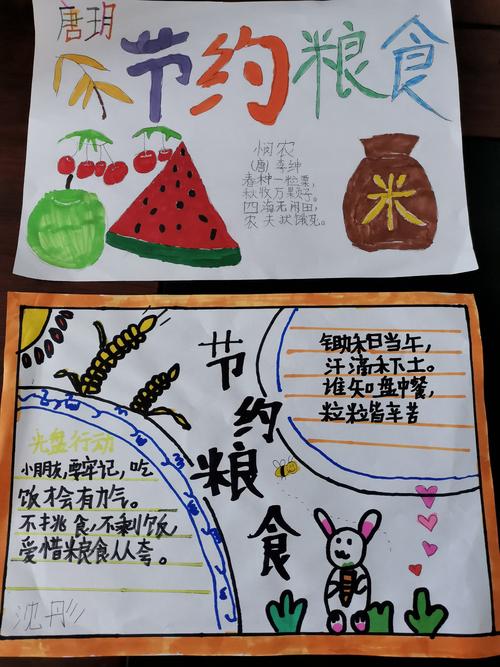 唐玥
节约粮食
悯农
(唐)李绅
春种一粒粟,
秋收万果子。
四海无用田,
农夫状饿死。
米
节约粮食
锄禾日当午,
汗滴禾下土。
谁知盘中餐,
粒粒皆辛苦
光盘行动
小朋友,要牢记,吃
饭才会有力气。
不挑食,不剩饭,
爱惜粮食人人夸。
沈彤